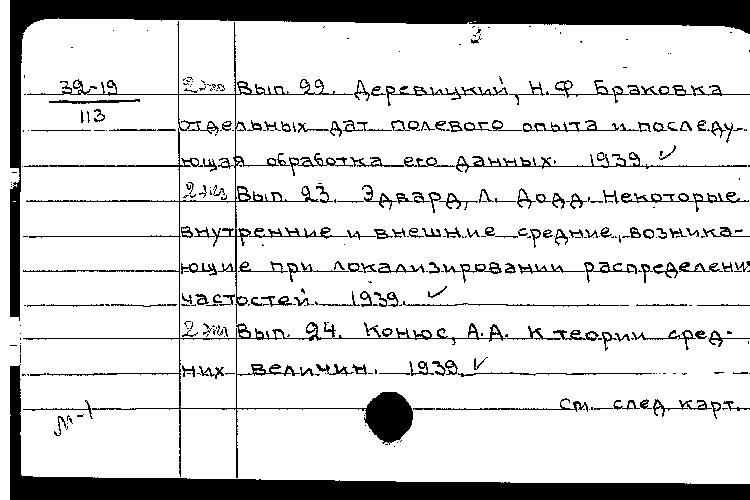 3
39-19
113
2 эк Вып. 22. Деревицкий, Н.Ф. Браковка
отдельных дат полевого опыта и последу-
ющая обработка его данных. 1939. ✓
2 эк Вып. 23. Эдвард, Л. Додд. Некоторые
внутренние и внешние средние, возника-
ющие при локализировании распределения
частостей. 1939. ✓
2 эк Вып. 24. Конюс, А.А. К теории сред-
них величин. 1939. ✓
см. след. карт.
М-1